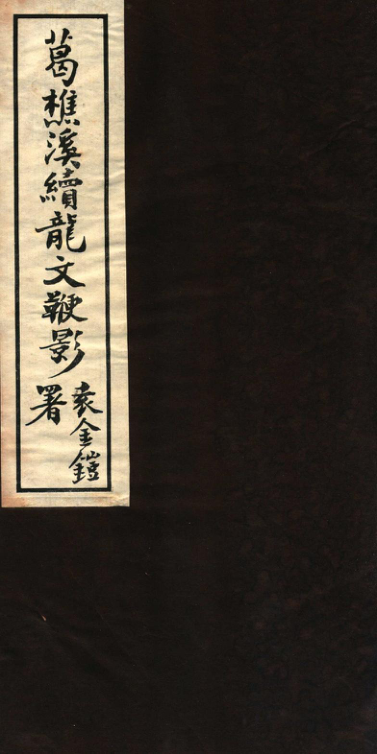 葛樵溪續龍文鞭影
袁金鎧
署